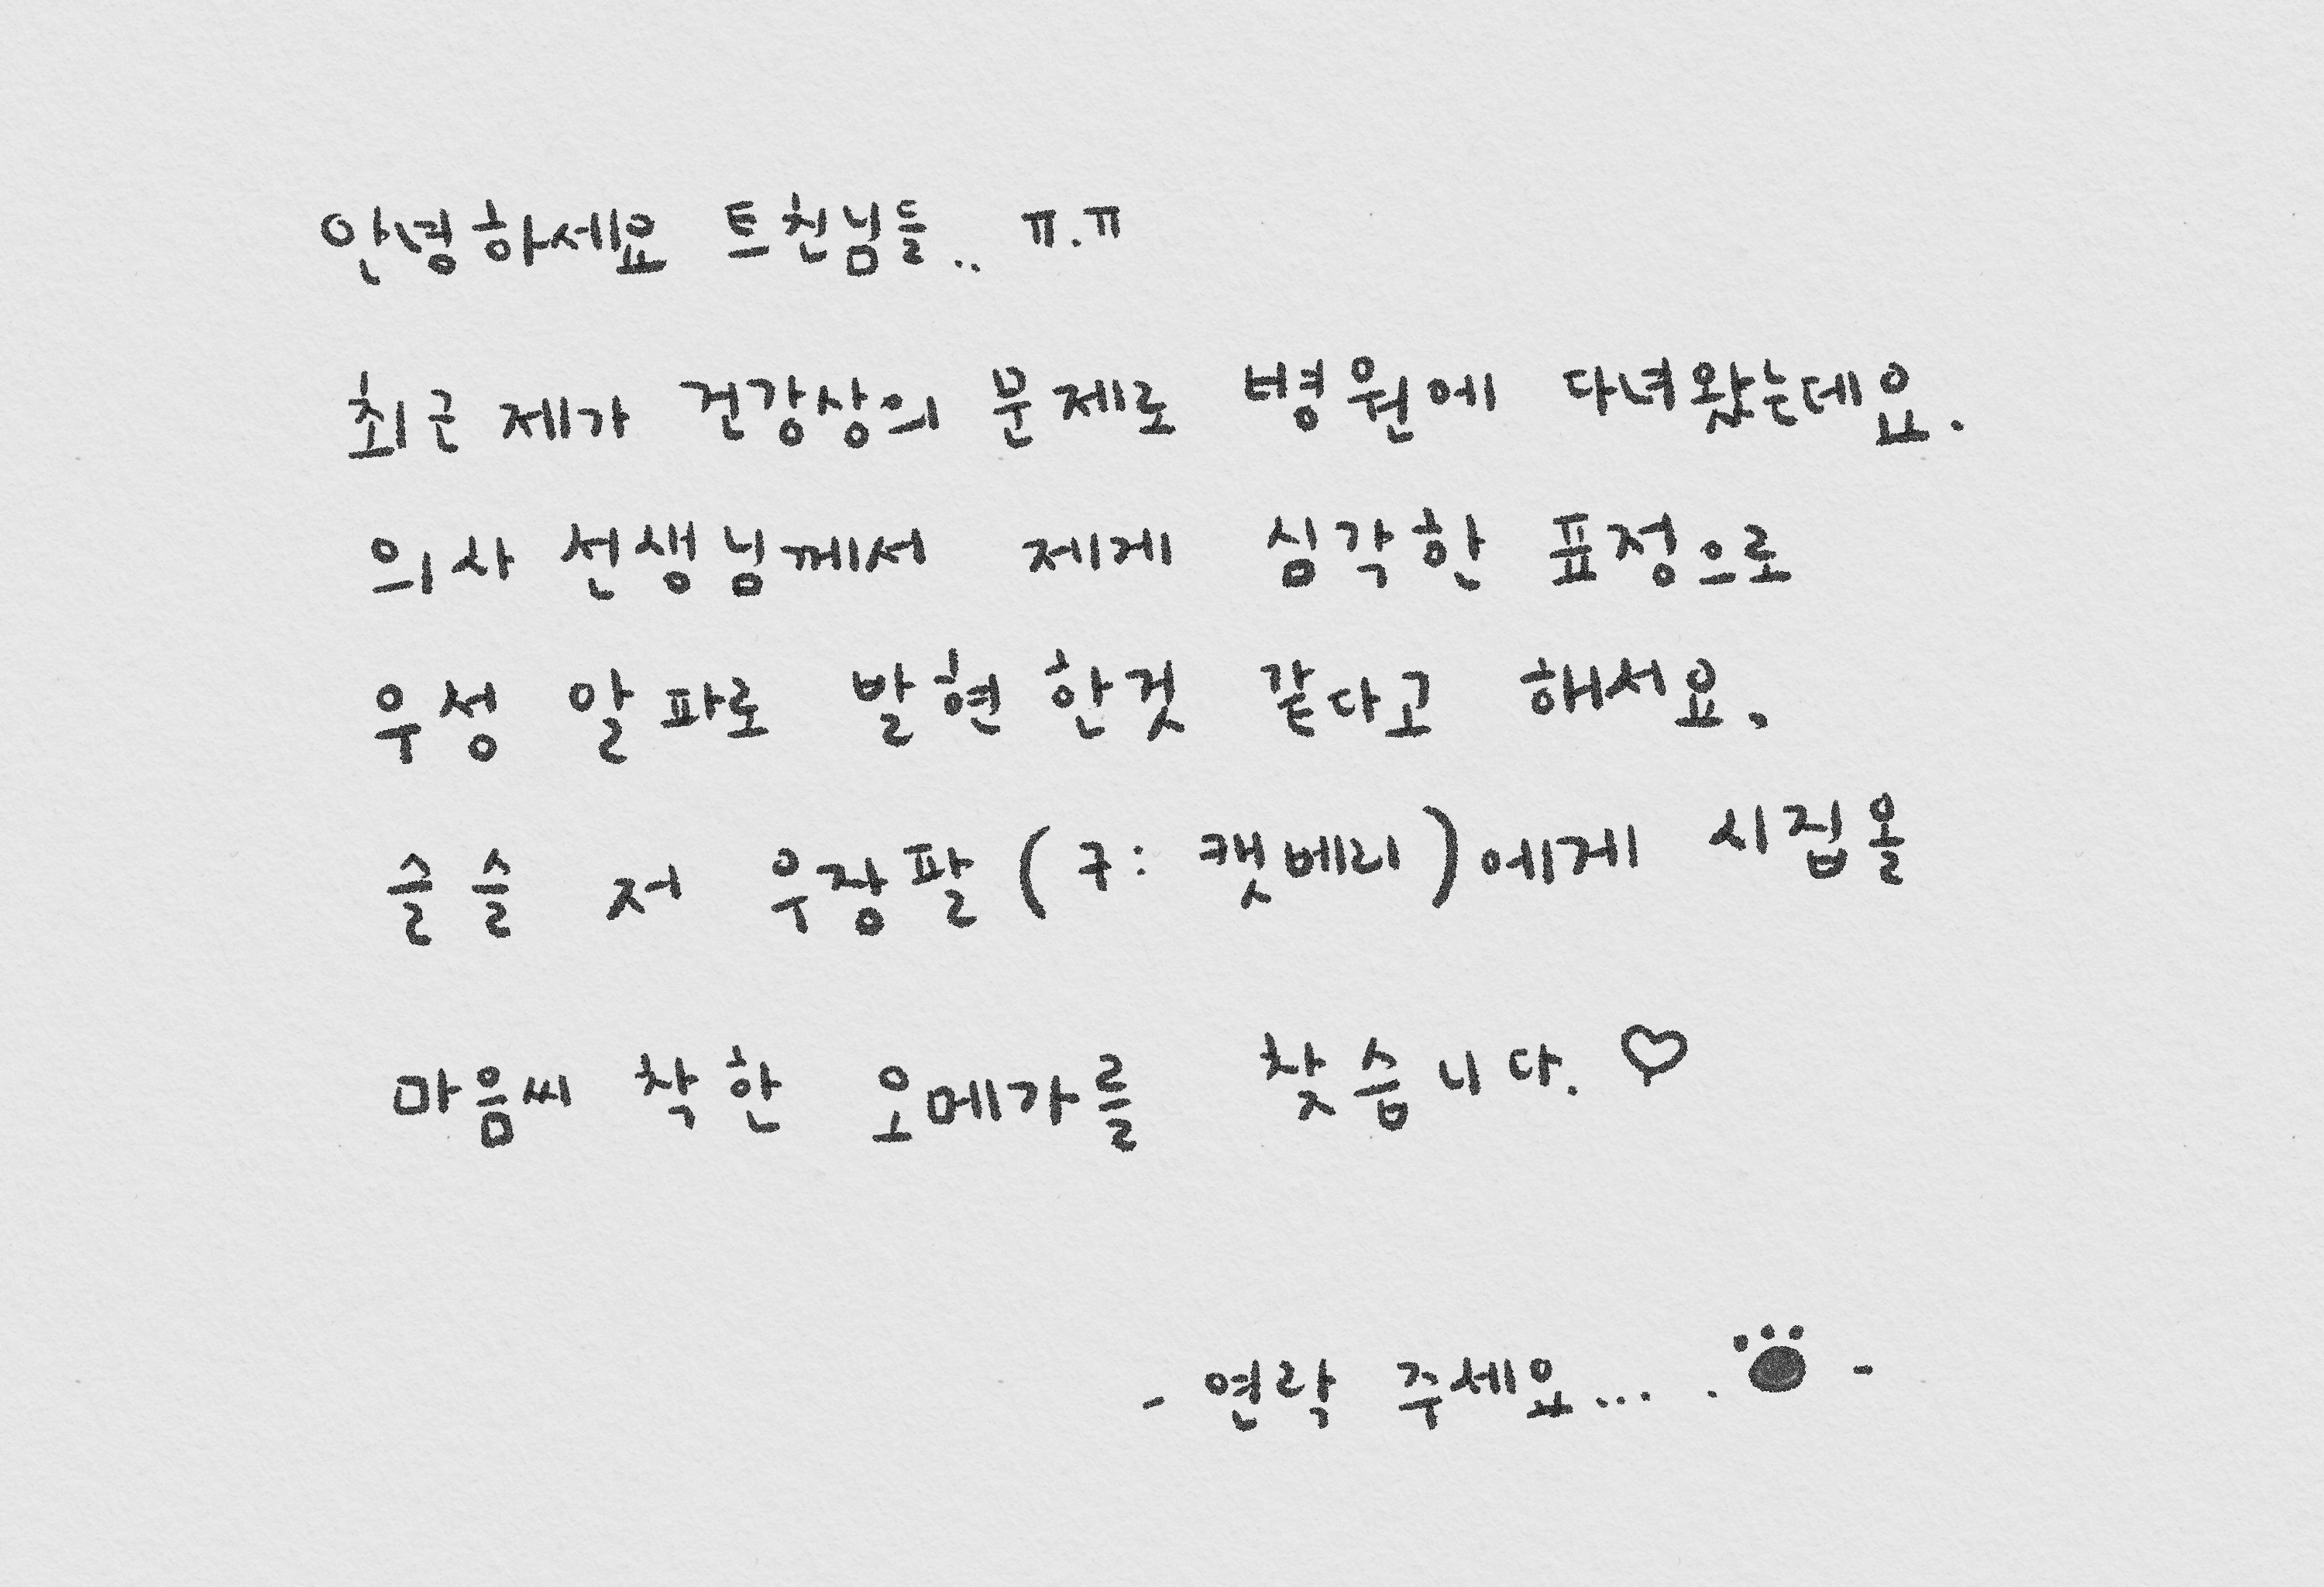 안녕하세요 트친님들.. ㅠ.ㅠ
최근 제가 건강상의 문제로 병원에 다녀왔는데요.
의사 선생님께서 제게 심각한 표정으로
우성 알파로 발현 한것 같다고 해서요.
슬슬 저 우장팔(구: 캣베리)에게 시집올
마음씨 착한 오메가를 찾습니다. ♡
- 연락 주세요... . -